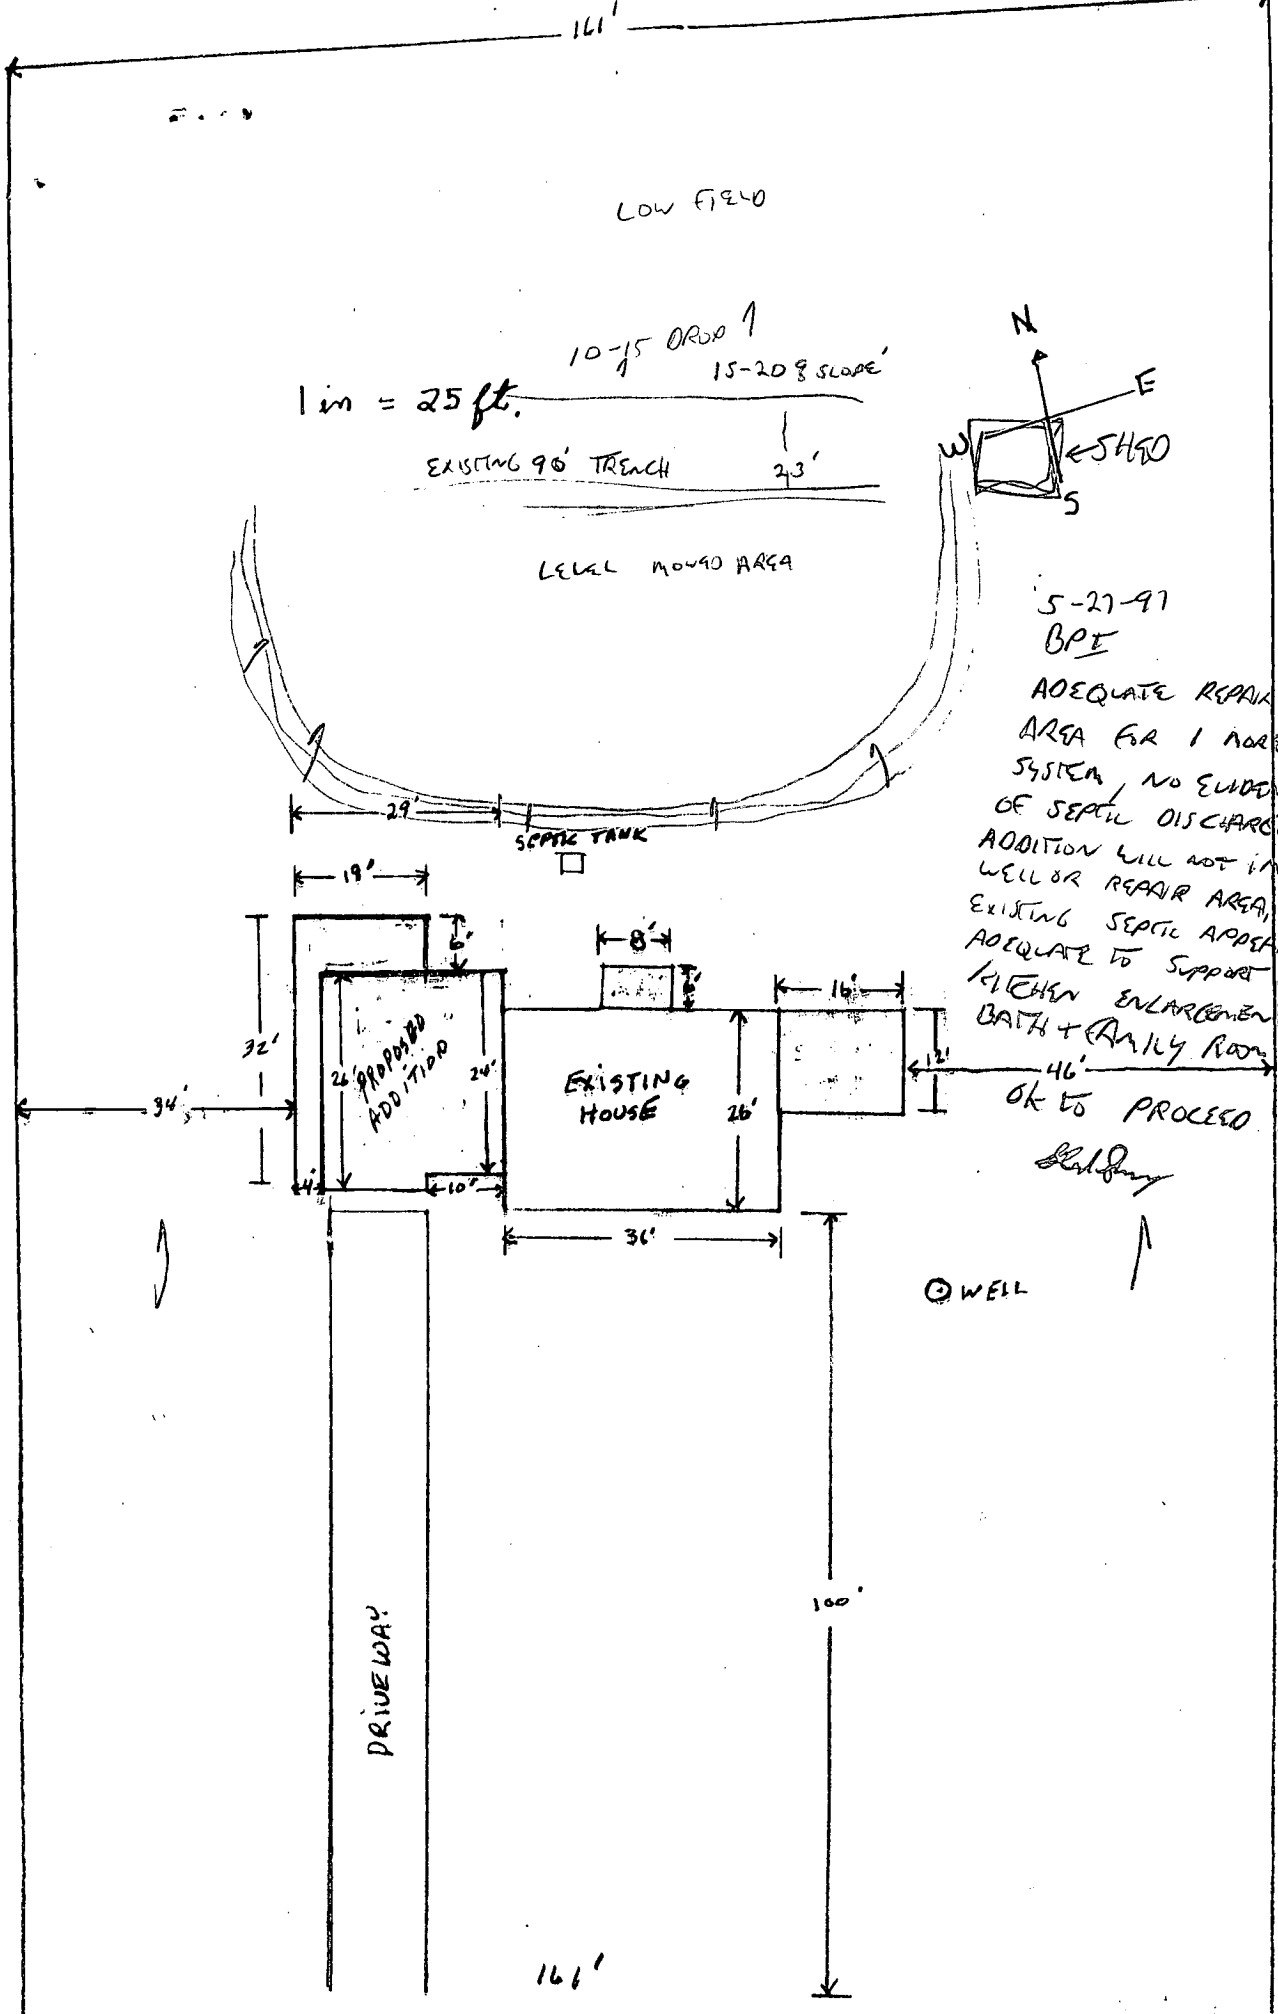 161'
LOW FIELD
10-15 DROP
15-20% SLOPE
1 in = 25 ft.
N
E
W
S
SHED
EXISTING 90' TRENCH
23'
LEVEL MOWED AREA
5-27-97
BPI
ADEQUATE REPAIR
AREA FOR 1 MORE
SYSTEM, NO EVIDEN
OF SEPTIC DISCHARG
ADDITION WILL NOT IM
WELL OR REPAIR AREA,
EXISTING SEPTIC APPEA
ADEQUATE TO SUPPORT
KITCHEN ENLARGEMEN
BATH + FAMILY ROOM
OK TO PROCEED
29'
SEPTIC TANK
18'
6'
8'
16'
32'
26'
PROPOSED
ADDITION
24'
EXISTING
HOUSE
26'
12'
46'
34'
4'
10'
36'
WELL
100'
DRIVEWAY
161'